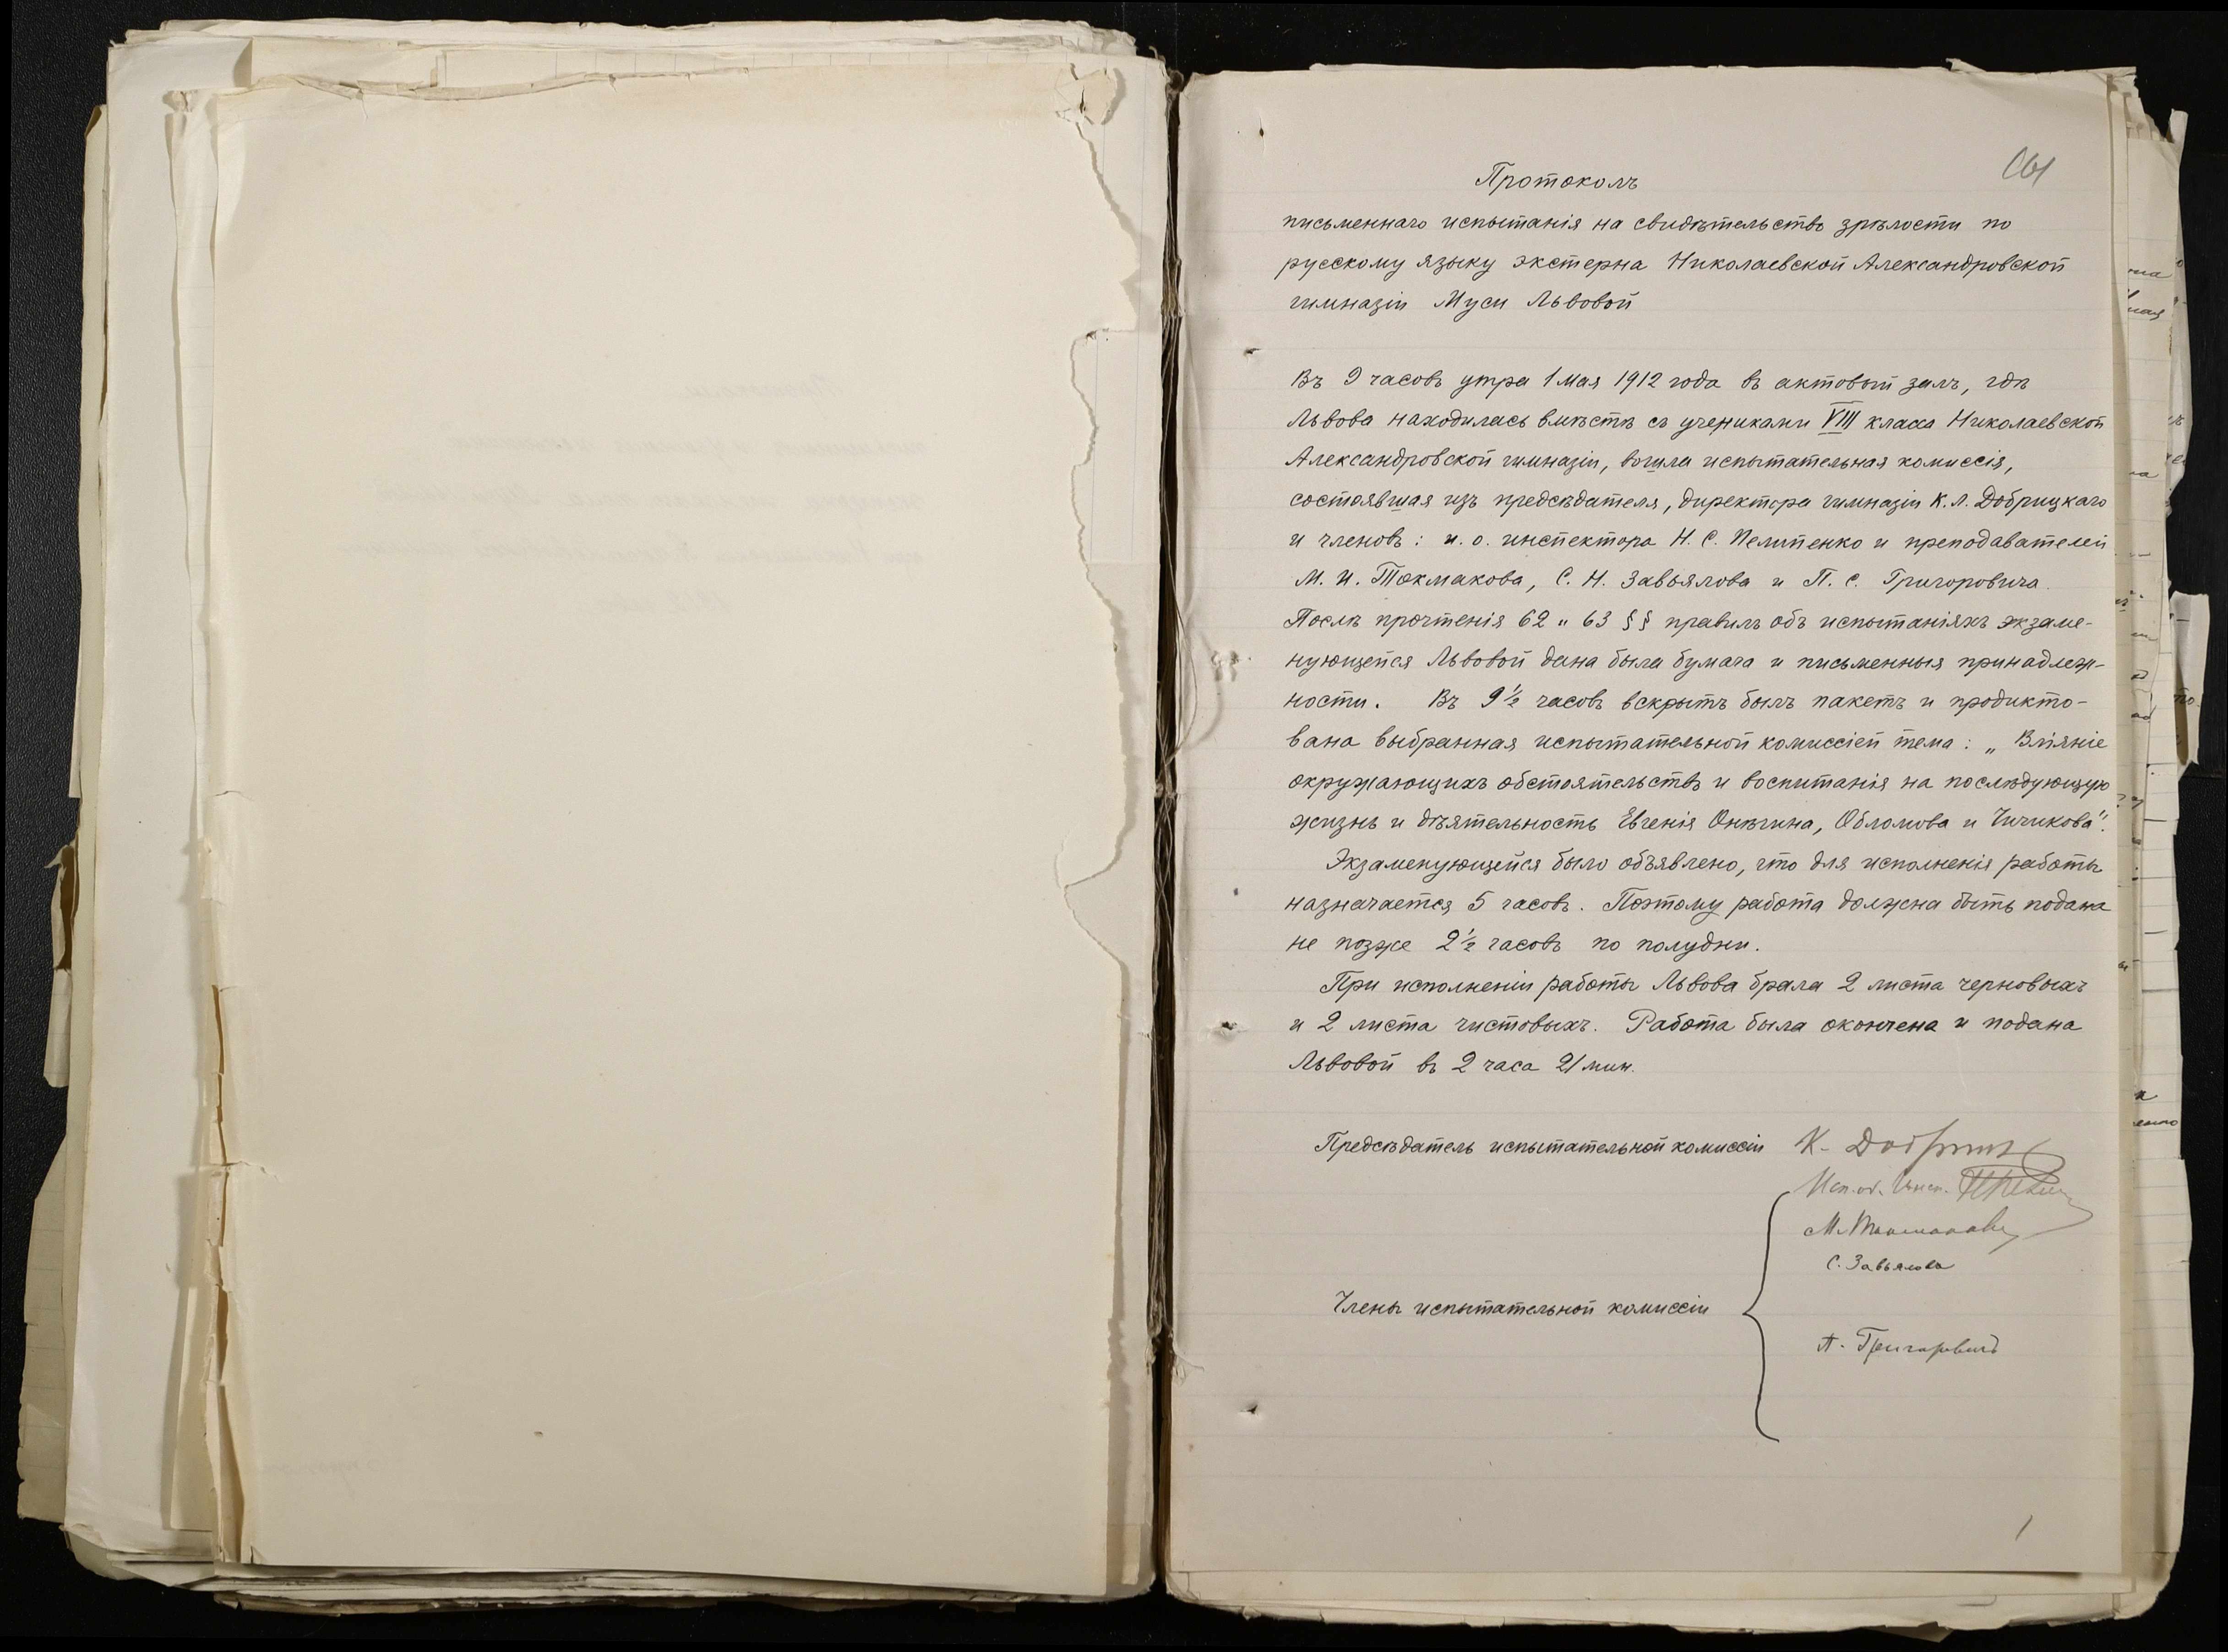 61
Протоколъ
письменнаго испытанія на свидѣтельство зрѣлости по
русскому языку экстерна Николаевской Александровской
гимназіи Муси Львовой
Въ 9 часовъ утра 1 мая 1912 года въ актовый залъ, гдѣ
Львова находилась вмѣстѣ съ учениками VIII класса Николаевской
Александровской гимназіи, вошла испытательная комиссія,
состоявшая изъ предсѣдателя, директора гимназіи К. Л. Добрицкаго
и членовъ: и. о. инспектора Н. С. Пелипенко и преподавателей
М. И. Токмакова, С. Н. Завьялова и П. С. Григоровича.
Послѣ прочтенія 62 и 63 §§ правилъ объ испытаніяхъ экзаме-
нующейся Львовой дана была бумага и письменныя принадлеж-
ности. Въ 9½ часовъ вскрытъ былъ пакетъ и продикто-
вана выбранная испытательной комиссіей тема: „Вліяніе
окружающихъ обстоятельствъ и воспитанія на послѣдующую
жизнь и дѣятельность Евгенія Онѣгина, Обломова и Чичикова".
Экзаменующейся было объявлено, что для исполненія работы
назначается 5 часовъ. Поэтому работа должна быть подана
не позже 2½ часовъ по полудни.
При исполненіи работы Львова брала 2 листа черновыхъ
и 2 листа чистовыхъ. Работа была окончена и подана
Львовой въ 2 часа 21 мин.
Предсѣдатель испытательной комиссіи К. Добриц
Исп. об. Инсп.
М. Токмаковъ
С. Завьяловъ
Члены испытательной комиссіи
П. Григоровичъ
1